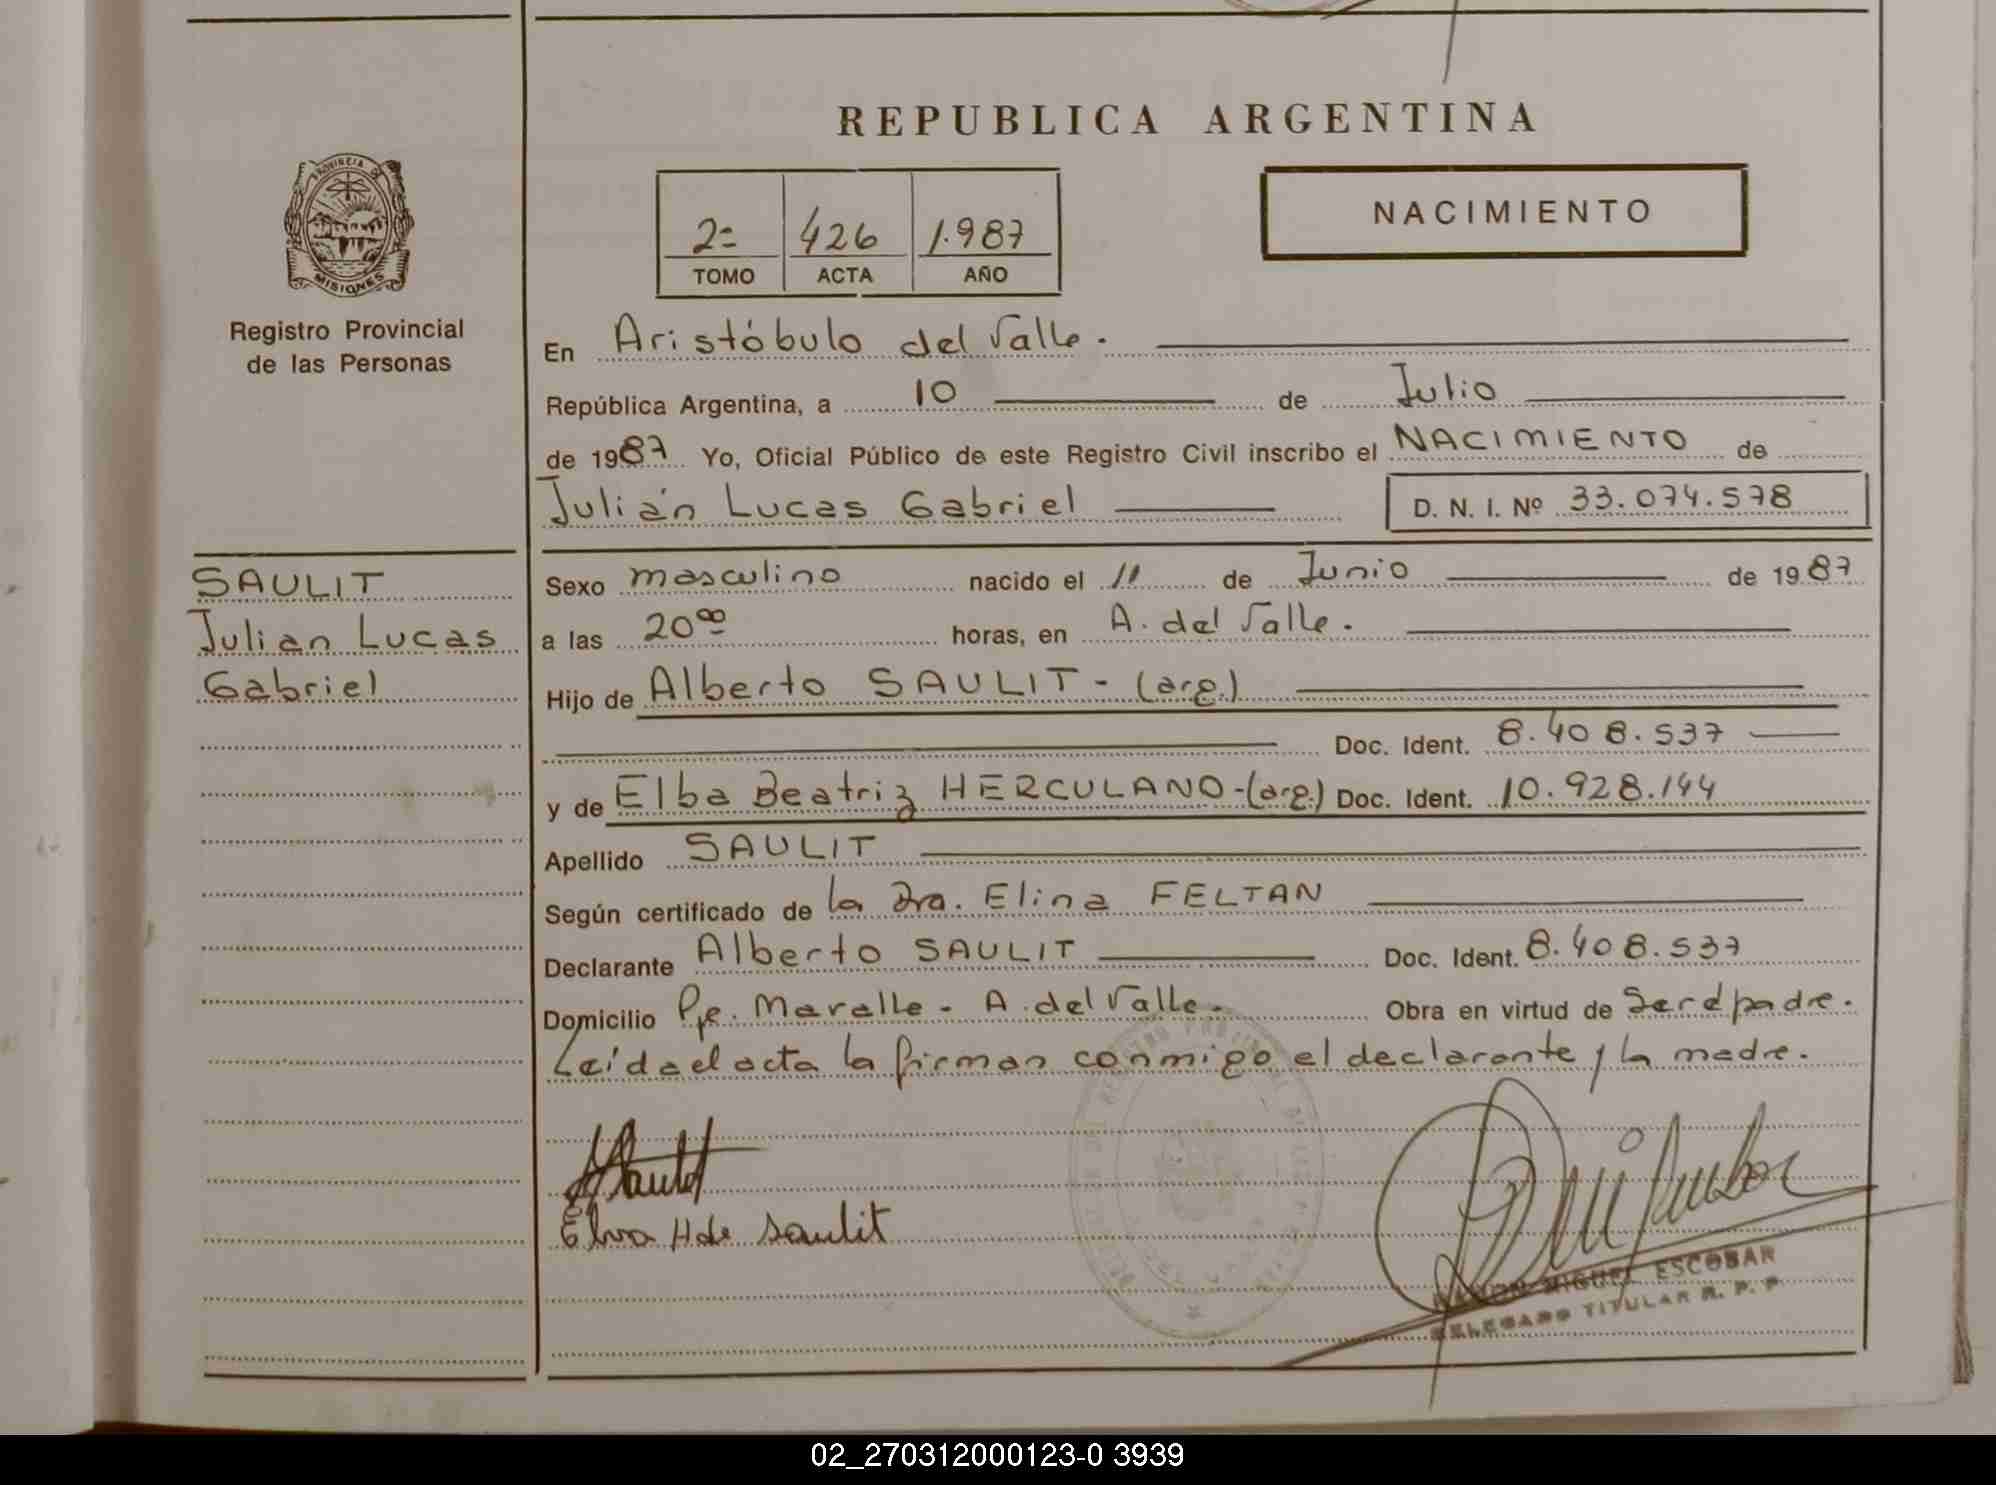 REPUBLICA ARGENTINA
PROVINCIA DE
MISIONES
Registro Provincial
de las Personas
2=
426
1.987
TOMO
ACTA
AÑO
NACIMIENTO
En Aristóbulo del Valle.
República Argentina, a 10 de Julio
de 1987 Yo, Oficial Público de este Registro Civil inscribo el NACIMIENTO de
Julián Lucas Gabriel D. N. I. Nº 33.074.578
SAULIT
Julian Lucas
Gabriel
Sexo masculino nacido el 11 de Junio de 1987
a las 20ºº horas, en A. del Valle.
Hijo de Alberto SAULIT - (arg.)
Doc. Ident. 8.408.537
y de Elba Beatriz HERCULANO-(arg.) Doc. Ident. 10.928.144
Apellido SAULIT
Según certificado de la Dra. Elina FELTAN
Declarante Alberto SAULIT Doc. Ident. 8.408.537
Domicilio Pje. Maralle - A. del Valle. Obra en virtud de Serdpadre.
Leídael acta la firman conmigo el declarante y la madre.
Elva H de Saulit
RAMON MIGUEL ESCOBAR
DELEGADO TITULAR R. P. P.
02_270312000123-0 3939